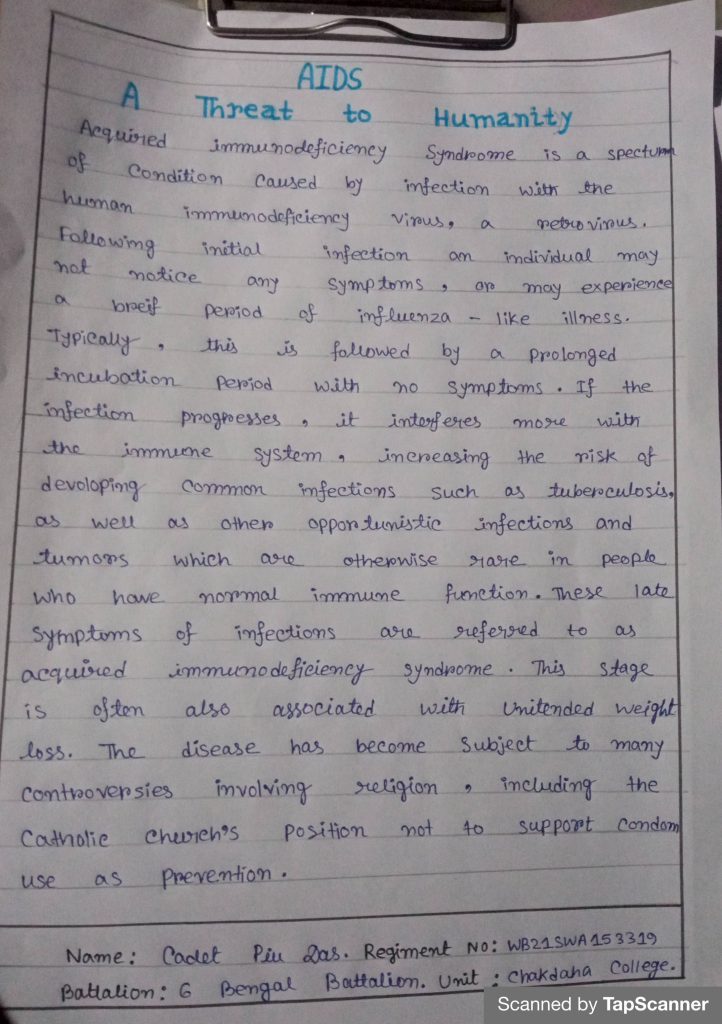 AIDS
A Threat to Humanity
Acquired immunodeficiency Syndrome is a spectrum
of Condition caused by infection with the
human immunodeficiency virus, a retrovirus.
Following initial infection an individual may
not notice any symptoms, or may experience
a breif period of influenza - like illness.
Typically, this is followed by a prolonged
incubation period with no symptoms. If the
infection progresses, it interferes more with
the immune system, increasing the risk of
devoloping common infections such as tuberculosis,
as well as other opportunistic infections and
tumors which are otherwise rare in people
who have normal immune function. These late
Symptoms of infections are referred to as
acquired immunodeficiency syndrome. This stage
is often also associated with Unitended weight
loss. The disease has become Subject to many
controversies involving religion, including the
Catholic Church's position not to support condom
use as prevention.
Name: Cadet Piu Das. Regiment No: WB21SWA153319
Battalion: 6 Bengal Battalion. Unit: Chakdaha College.
Scanned by TapScanner